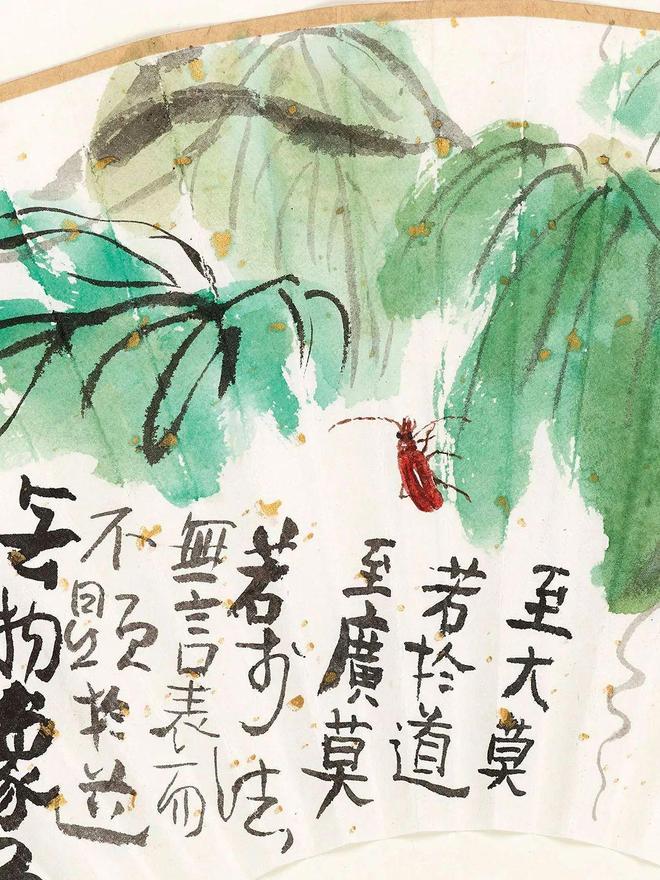 至大莫
若於道
至廣莫
若於法
無言表而
不顯於道
無物象